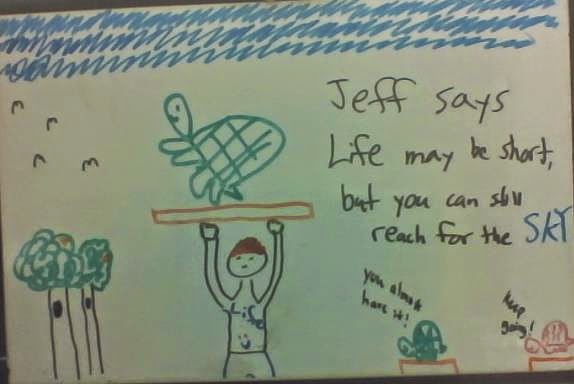 Jeff says
Life may be short,
but you can still
reach for the SKY
you almost
have it!
Keep
going!
Life